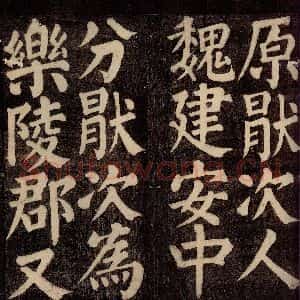 原猒次人
魏建安中
分猒次為
樂陵郡又